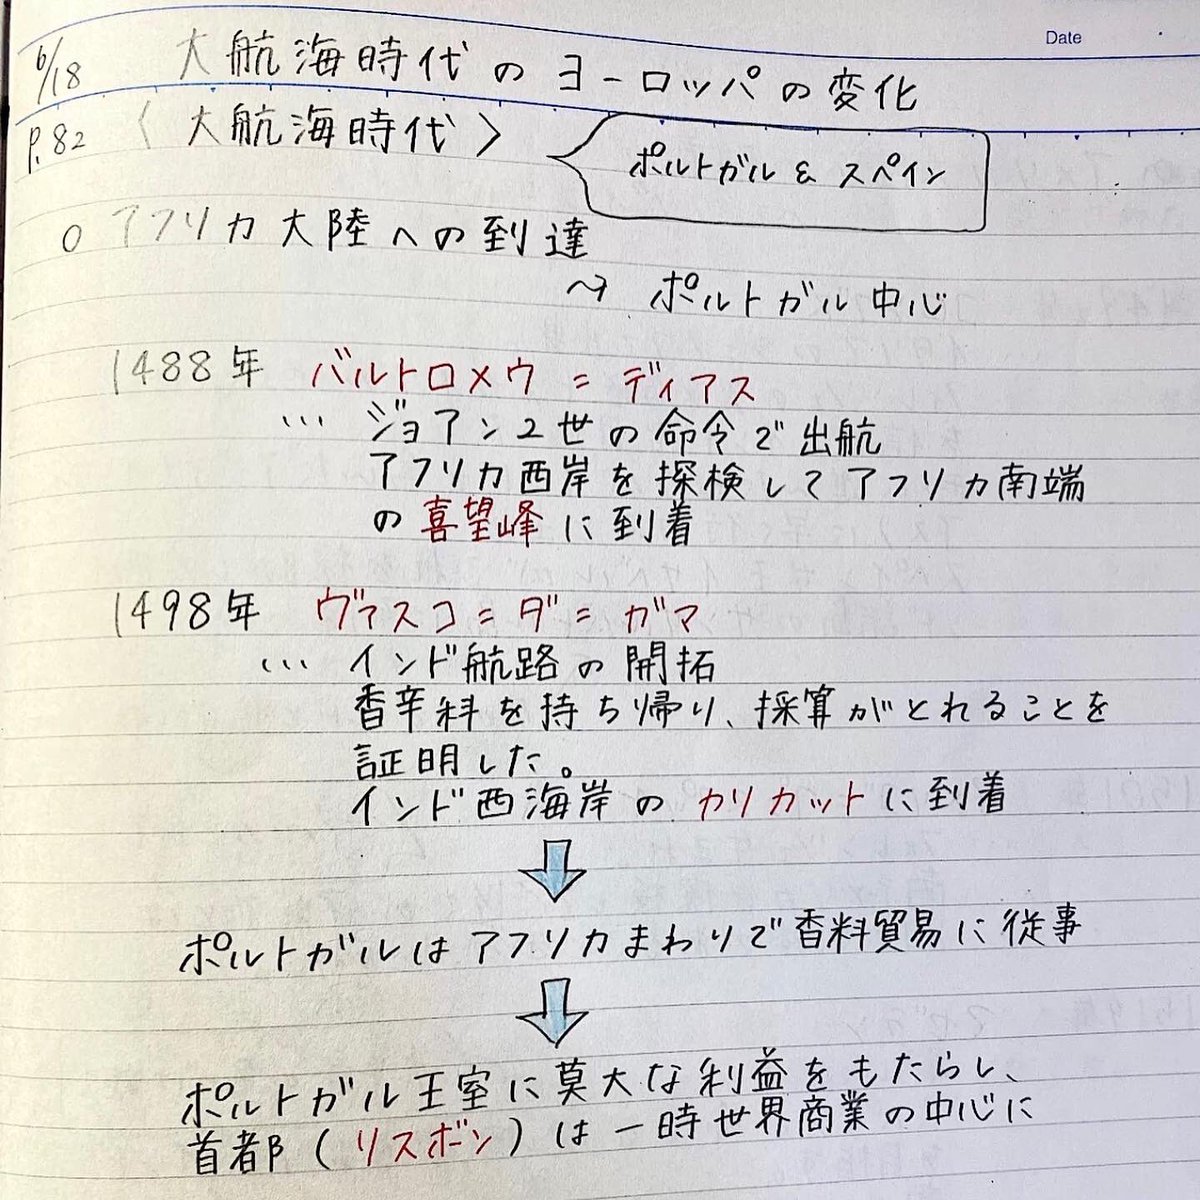 Date
6/18 大航海時代のヨーロッパの変化
P.82 〈大航海時代〉
ポルトガル & スペイン
○ アフリカ大陸への到達
→ ポルトガル中心
1488年 バルトロメウ=ディアス
… ジョアン2世の命令で出航
アフリカ西岸を探検してアフリカ南端
の喜望峰に到着
1498年 ヴァスコ=ダ=ガマ
… インド航路の開拓
香辛料を持ち帰り、採算がとれることを
証明した。
インド西海岸のカリカットに到着
ポルトガルはアフリカまわりで香料貿易に従事
ポルトガル王室に莫大な利益をもたらし、
首都(リスボン)は一時世界商業の中心に